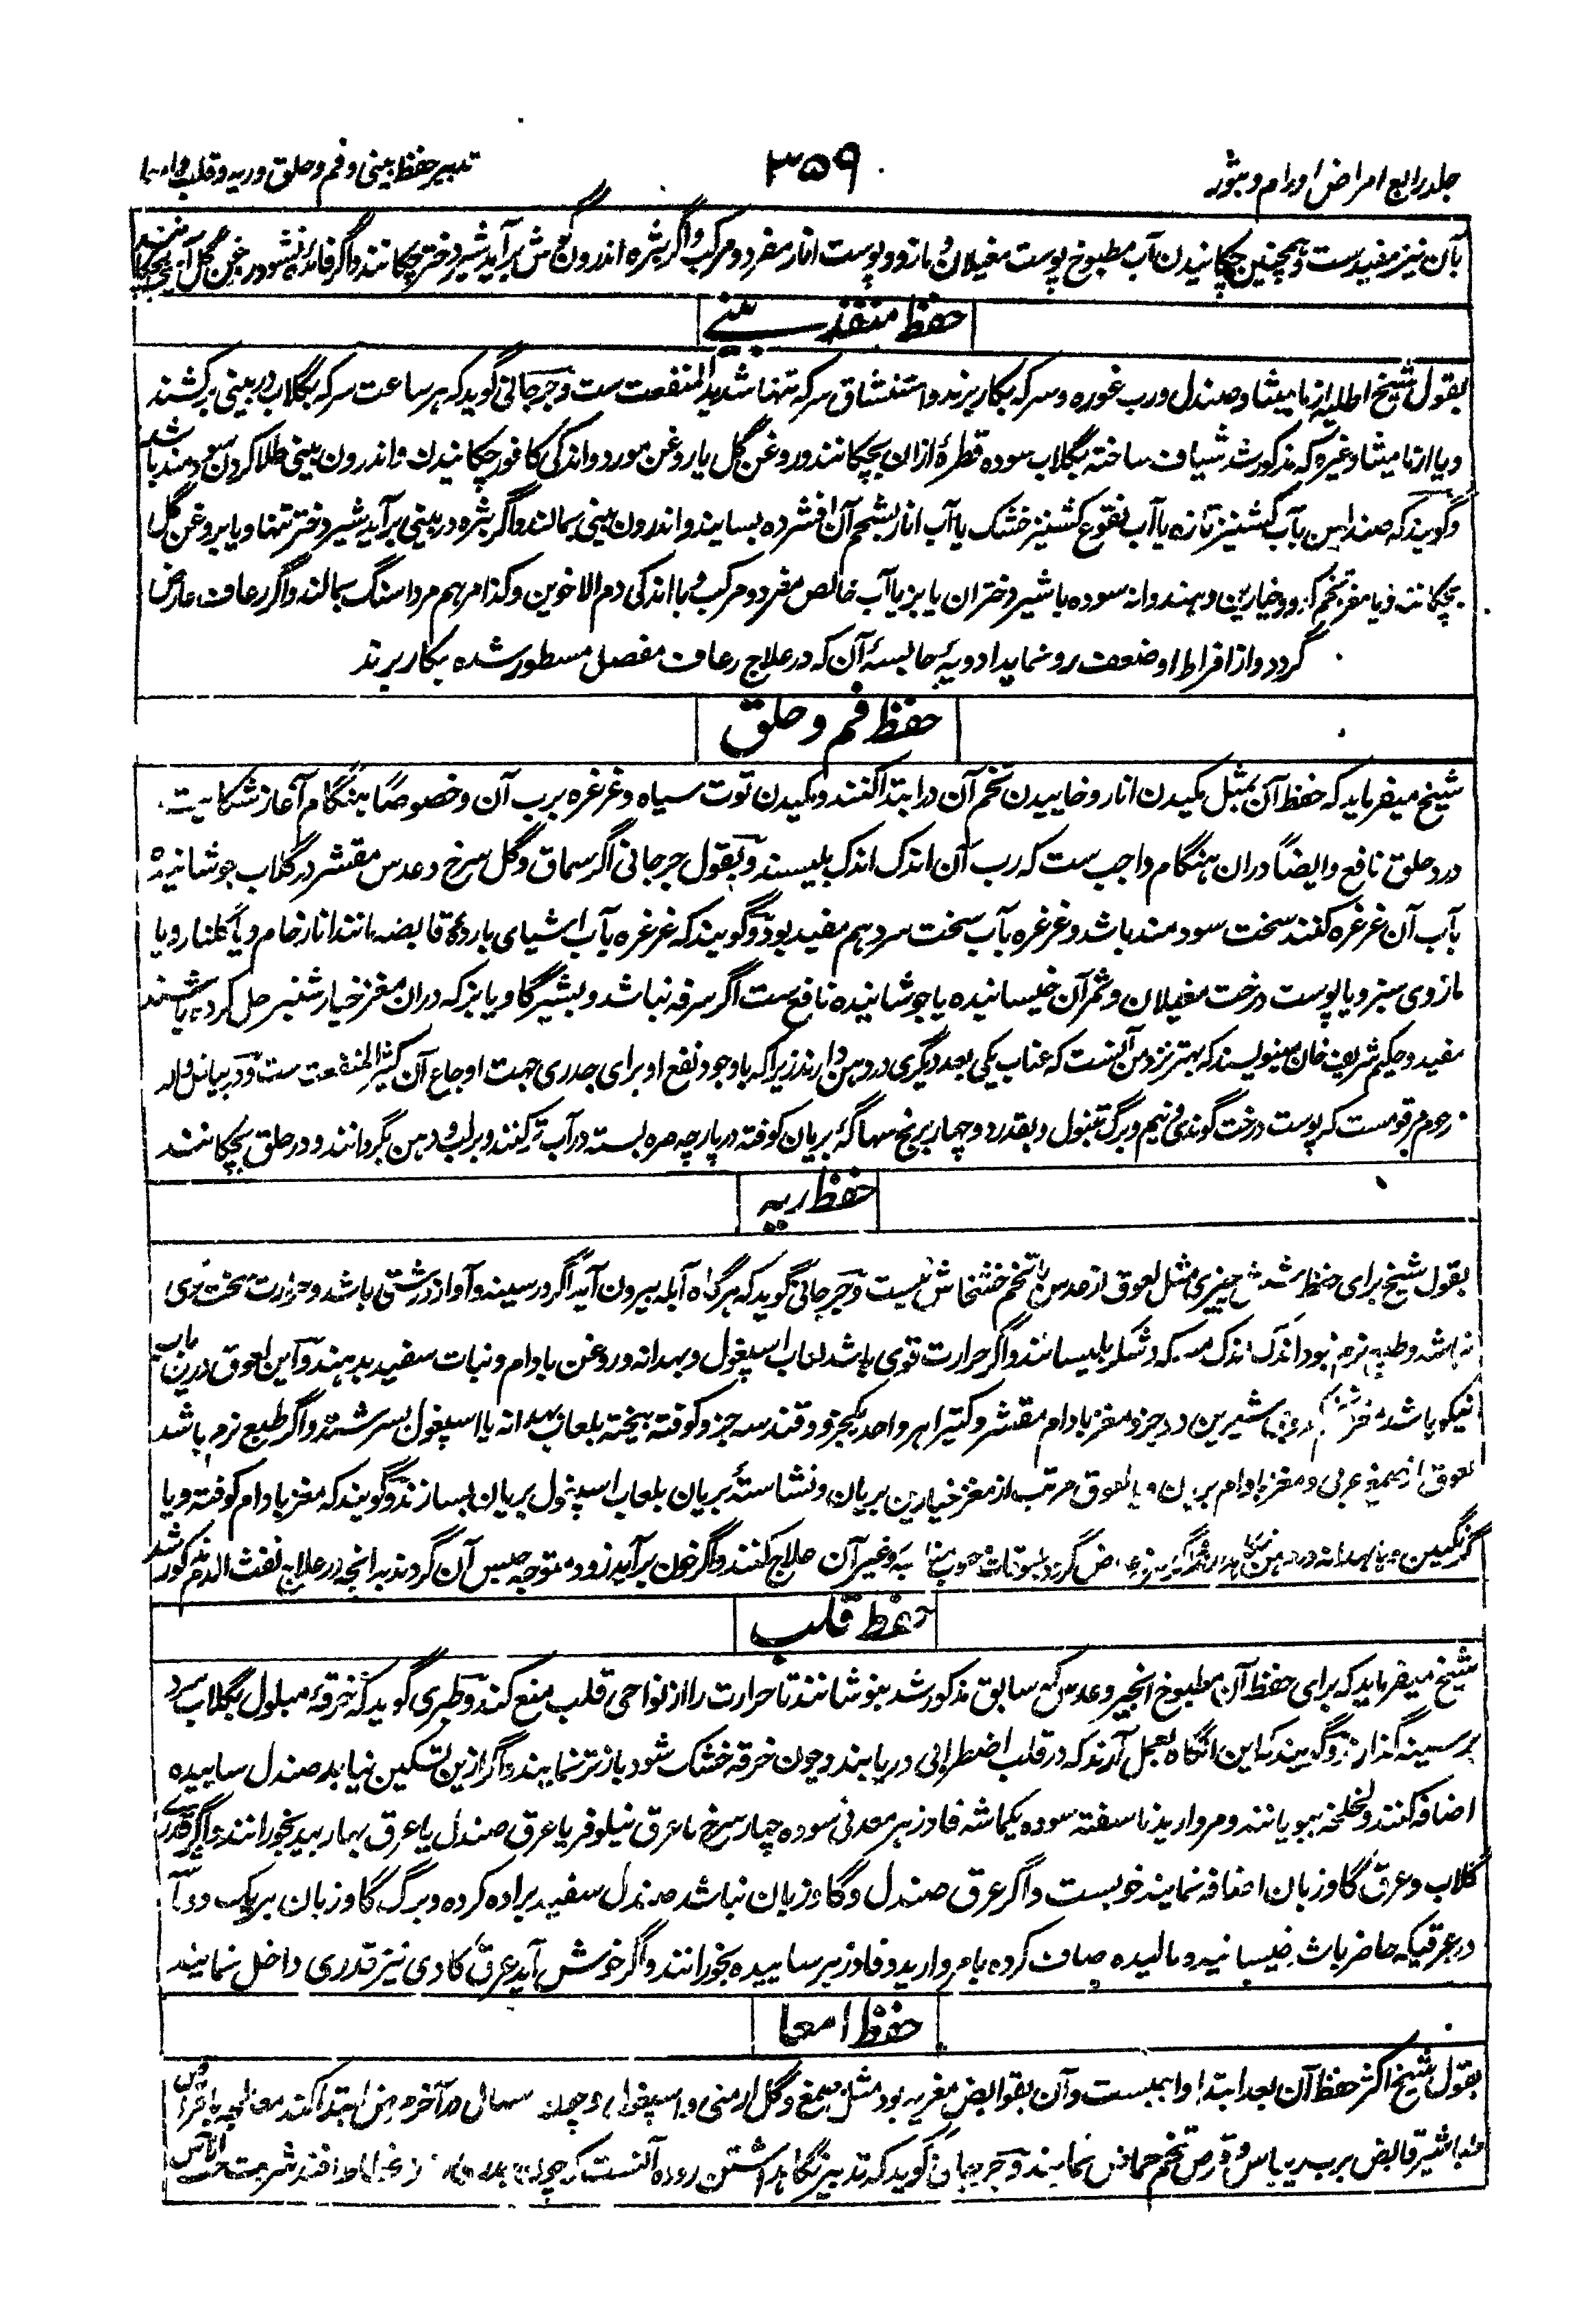 جلد رابع امراض اورام و بثور
۳۵۹
تدبیر حفظ بینی و فم و حلق و ریه و قلب و امعا
بآن نیز مفیدست و همچنین چکانیدن آب مطبوخ پوست مغیلان و مازو و پوست انار مفرد و مرکب و اگر بثره اندرون گوش برآید شیر دختر چکانند و اگر فائده نشود روغن گل
حفظ منفذ بینی
بقول شیخ اطلیه از مامیثا و صندل و رب غوره و سرکه بکار برند و استنشاق سرکه تنها شدید المنفعت ست و جرجانی گوید که هر ساعت سرکه بگلاب در بینی برکشند
و یا از مامیثا و غیره که مذکور شد شیاف ساخته بگلاب سوده قطرهٔ ازان بچکانند و روغن گل یا روغن مورد و اندکی کافور چکانیدن و اندرون بینی طلا کردن سودمند باشد
و گویند که صندلین بآب کشنیز تازه یا آب نقوع کشنیز خشک یا آب انار بشحم آن افشرده بسایند و اندرون بینی بمالند و اگر بثره در بینی برآید شیر دختر تنها و یا بروغن گل
بچکانند و یا مغز تخم کدو و خیارین و هندوانه سوده با شیر دختران یا بز یا آب خالص مفرد و مرکب و با اندکی دم الاخوین و کذا مرهم مرداسنگ بمالند و اگر رعاف عارض
گردد و از افراط او ضعف رو نماید ادویهٔ حابسهٔ آن که در علاج رعاف مفصل مسطور شده بکار برند
حفظ فم و حلق
شیخ میفرماید که حفظ آن بمثل مکیدن انار و خاییدن تخم آن در ابتدا کنند و مکیدن توت سیاه و غرغره برب آن و خصوصاً هنگام آغاز شکایت
درد حلق نافع و ایضاً دران هنگام واجب ست که رب آن اندک اندک بلیسند و بقول جرجانی اگر سماق و گل سرخ و عدس مقشر در گلاب جوشانیده
بآب آن غرغره کنند سخت سودمند باشد و غرغره بآب سخت سرد هم مفید بود و گویند که غرغره بآب اشیای باردهٔ قابضه مانند انار خام و یا گلنار و یا
مازوی سبز و یا پوست درخت مغیلان و ثمر آن خیسانیده یا جوشانیده نافع ست اگر سرفه نباشد و بشیر گاو و یا بز که دران مغز خیارشنبر حل کرده باشند
مفید و حکیم شریف خان مینویسند که بهتر نزد من آنست که عناب یکی بعد دیگری در دهن دارند زیرا که با وجود نفع او برای جدری جهت اوجاع آن کثیر المنفعت ست و در بیاض والد
مرحوم مرقومست که پوست درخت گوندنی و نیم و برگ تنبول و بقدر دو چهار برنج سهاگهٔ بریان کوفته در پارچه صره بسته در آب تر کنند و بر لب و دهن بگردانند و در حلق بچکانند
حفظ ریه
بقول شیخ برای حفظ شش چیزی مثل لعوق از عدس با تخم خشخاش نیست و جرجانی گوید که هرگاه آبله بیرون آید اگر در سینه و آواز درشتی باشد و حرارت سخت قوی
نباشد و طبع نرم بود اندک اندک مسکه و شکر بلیسانند و اگر حرارت قوی باشد لعاب اسپغول و بهدانه و روغن بادام و نبات سفید بدهند و این لعوق درین باب
نیکو باشد مغز تخم کدوی شیرین دو جزو مغز بادام مقشر و کتیرا هر واحد یکجزو و قند سه جزو کوفته بیخته بلعاب بهدانه یا اسپغول بسرشند و اگر طبع نرم باشد
لعوق از صمغ عربی و مغز بادام بریان و یا لعوق مرتب از مغز خیارین بریان و نشاستهٔ بریان بلعاب اسپغول بریان بسازند و گویند که مغز بادام کوفته و یا
گزنگبین و یا بهدانه در دهن و غیر آن علاج کنند و اگر خون برآید زود متوجه حبس آن گردند بدانچه در علاج نفث الدم مذکور شد
حفظ قلب
شیخ میفرماید که برای حفظ آن مطبوخ انجیر و عدس که سابق مذکور شد بنوشانند تا حرارت را از نواحی قلب منع کند و طبری گوید که خرقهٔ مبلول بگلاب سرد
بر سینه گذارند و گویند که این آنگاه بعمل آرند که در قلب اضطرابی دریابند و چون خرقه خشک شود باز تر نمایند و اگر ازین تسکین نیابد صندل ساییده
اضافه کنند و لخلخه ببویانند و مروارید ناسفته سوده یکماشه فادزهر معدنی سوده چهار سرخ با عرق نیلوفر یا عرق صندل یا عرق بهار بید بخورانند و اگر قدری
گلاب و عرق گاوزبان اضافه نمایند خوبست و اگر عرق صندل و گاوزبان نباشد صندل سفید براده کرده و برگ گاوزبان هریک دو ماشه
در عرقیکه حاضر باشد خیسانیده و مالیده صاف کرده با مروارید و فادزهر ساییده بخورانند و اگر خوش آید عرق کادی نیز قدری داخل نمایند
حفظ امعا
بقول شیخ اکثر حفظ آن بعد ابتدا واجبست و آن بقوابض مغریه بود مثل صمغ و گل ارمنی و اسپغول و چون اسهال در آخر مرض ابتدا کند معالجه باقراص
طباشیر قابض برب ریباس و قرص تخم حماض نمایند و جرجانی گوید که تدبیر نگاهداشتن روده آنست که چون شربت